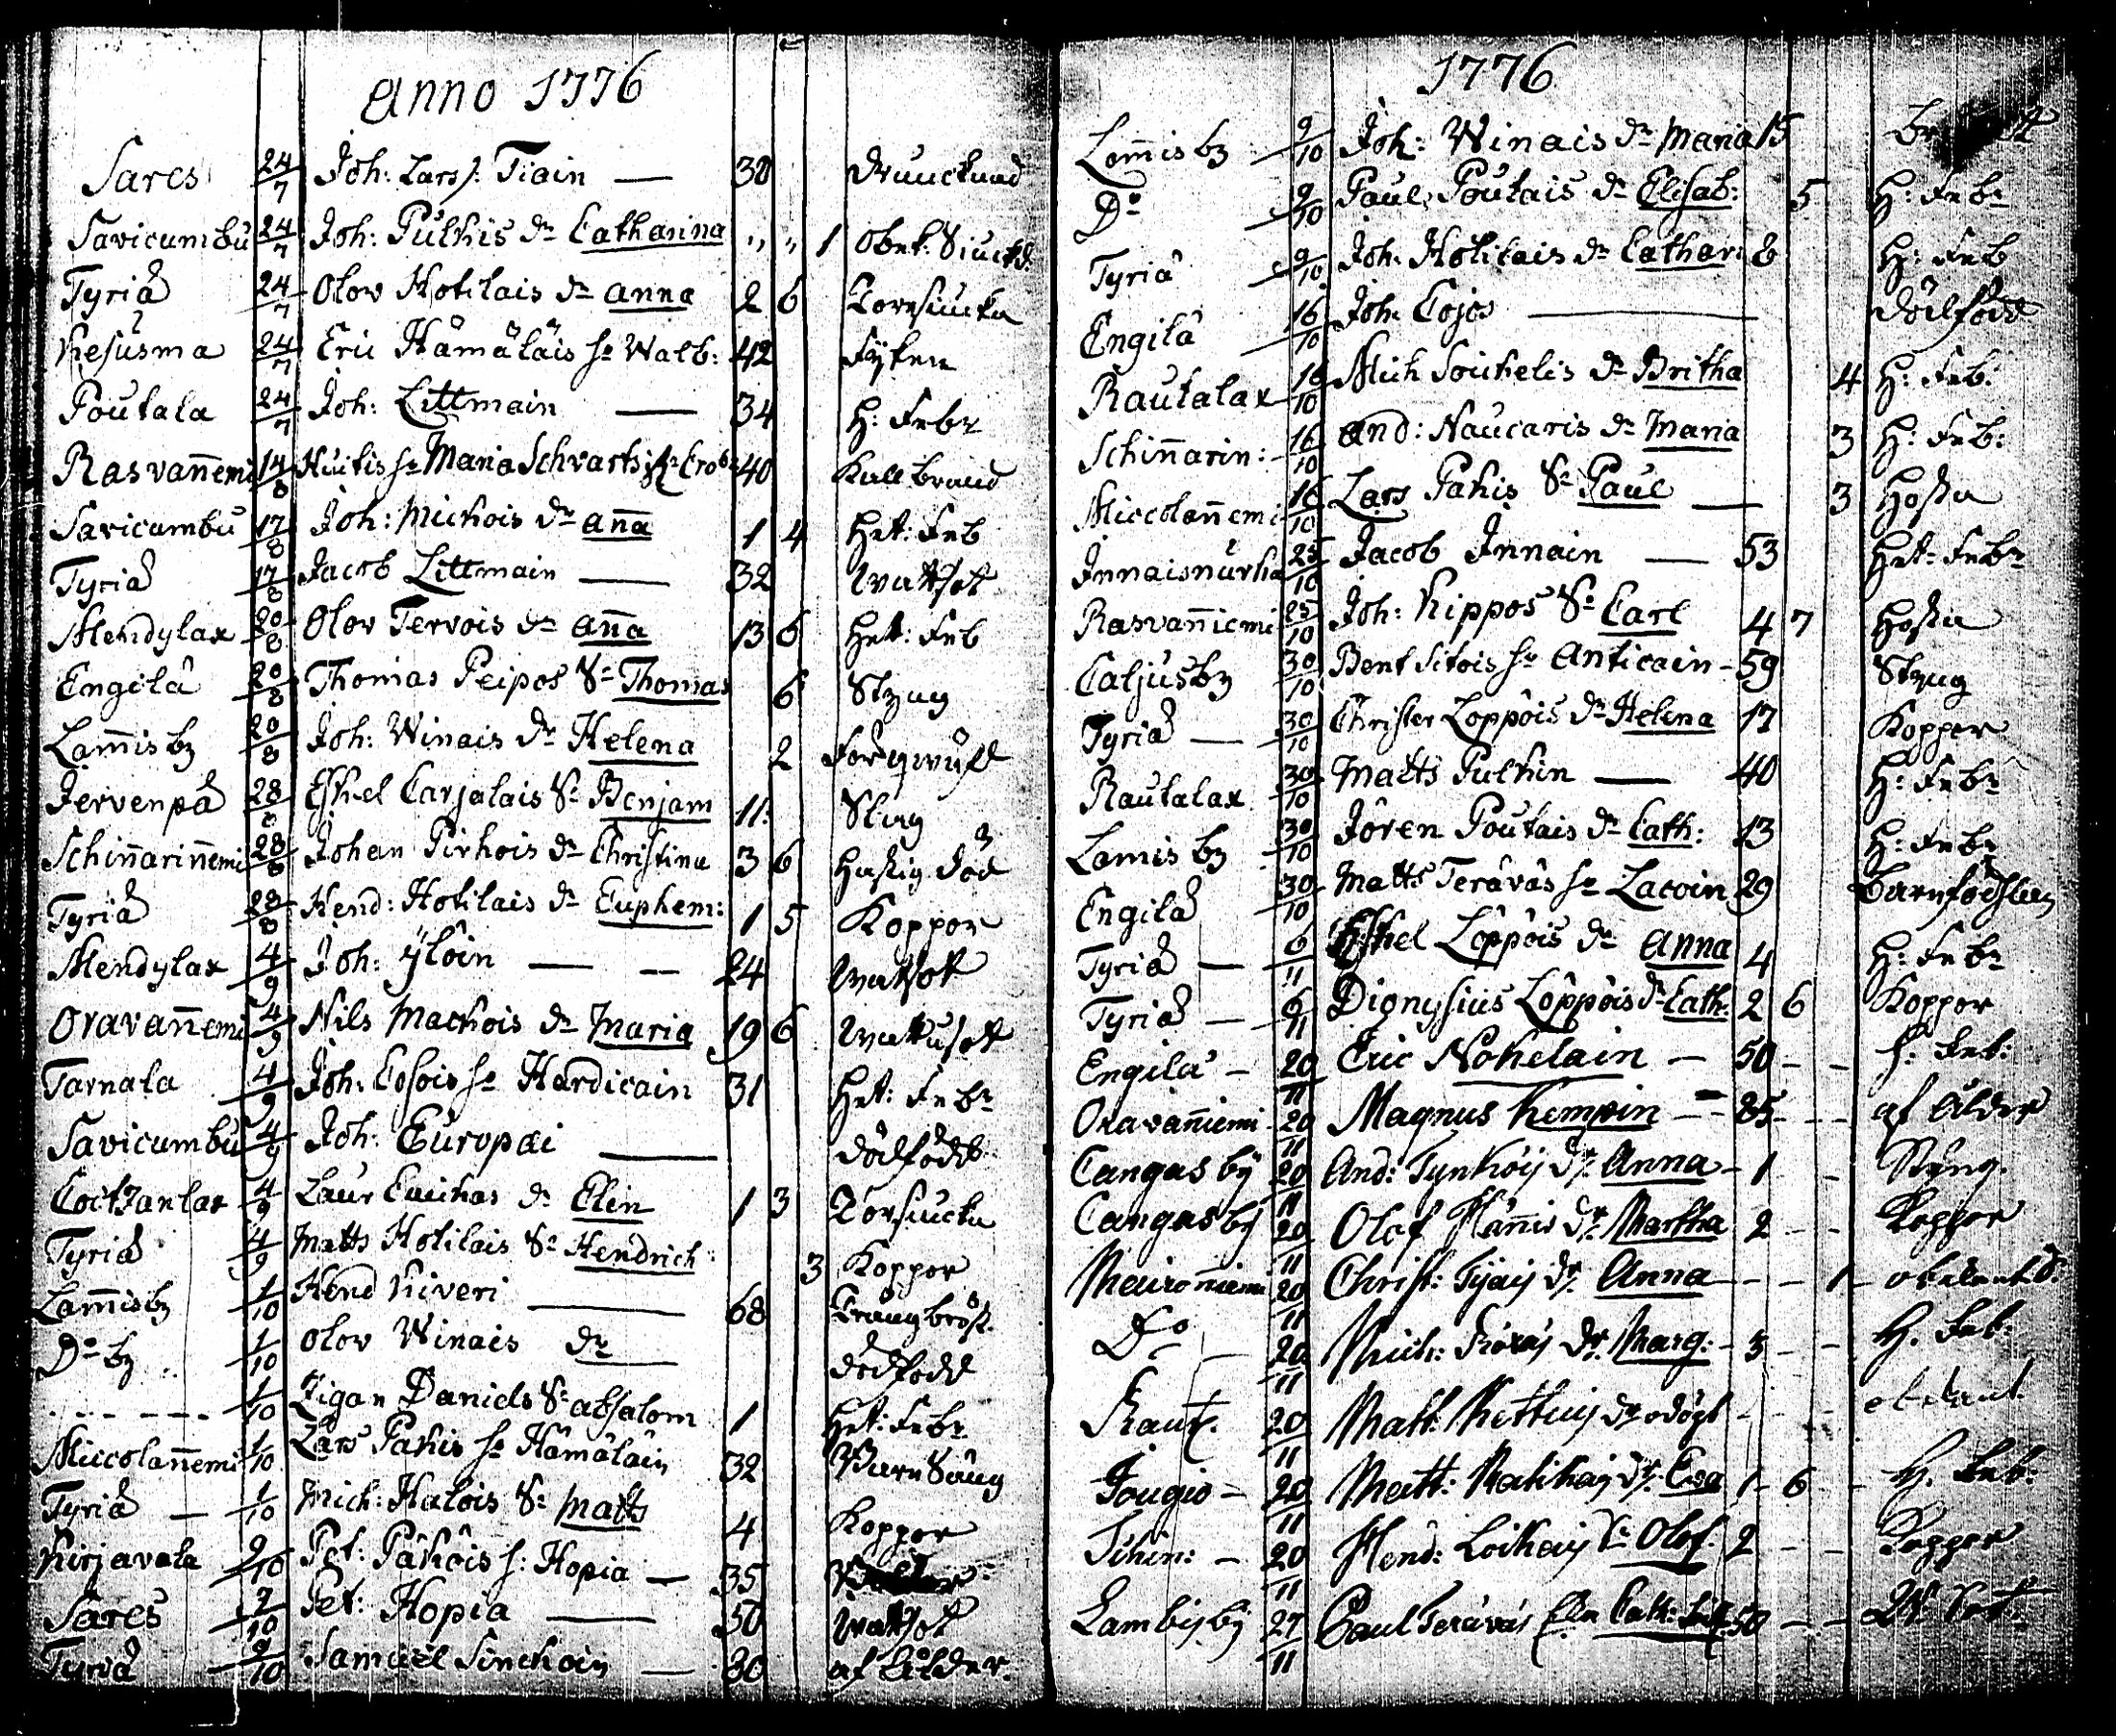 Anno 1776
Sares 24/7 Joh: Lars s: Tiain — 38 Drunknad
Savicumbu 24/7 Joh: Pulkis dr Catharina " " 1 obek: Siukd.
Tyriä 24/7 Olov Hotilais dr Anna 2 6 Torrsiuka
Kesusma 24/7 Eric Hämäläis hr Walb: 42
Poutala 24/7 Joh: Littmain — 34 H: Febr
Rasvanniemi 14/8 Maria Schvarts 40 Kallbrand
Savicumbu 17/8 Joh: Michois dr Anna 1 4 Het: Feb
Tyriä 17/8 Jacob Littmain — 32 Wattsot
Mendylax 20/8 Olov Tervois dr Anna 13 6 Het: Feb
Engilä 20/8 Thomas Peipos Sr Thomas 6 Styng
Lamis by 20/8 Joh: Winais dr Helena 2
Jervenpä 28/8 Eskel Carjalais Sr Benjam 11 Slag
Schinnarinnemi 28/8 Johan Pirhois dr Christina 3 6 Hastig död
Tyriä 28/8 Hend: Hotilais dr Euphem: 1 5 Koppor
Mendylax 4/9 Joh: Ylöin — — 24 Wattsot
Oravannemi 4/9 Nils Machois dr Maria 19 6 Wattusot
Tarnala 4/9 Joh: Cosois hr Hardicain 31 Het: Febr
Savicumbu 4/9 Joh: Europæi — dödfödd
Coitzanlax 4/9 Laur Cuichas dr Elin 1 3 Torrsiucka
Tyriä 4/9 Matts Hotilais Sr Hendrich 3 Koppor
Lamisby 1/10 Hend Kiveri — 68 Trångbröst.
Do by 1/10 Olov Winais dr — dödfödd
- - - - 1/10 Zigan Daniels Sr Absalom 1 Het: Febr
Miccolannemi 1/10 Lars Pakis hr Hämäläin 32 Barnsäng
Tyriä — 1/10 Mich: Halois Sr Matts 4 Koppor
Kirjavala 9/10 Pet: Päköis h: Hopia — 35
Sares 9/10 Pet: Hopia — 50 Wattsot
Tyriä 9/10 Samuel Sinckoin — 80 af Ålder.
1776
Lomis by 9/10 Joh: Winais dr Maria 15
Do 9/10 Paul Poutais dr Elisab: 5 H: Febr
Tyriä 9/10 Joh. Hotilais dr Cathar: 8 H: Feb
Engilä 16/10 Joh. Cojos — dödfödd
Rautalax 16/10 Mich Soickelis dr Britha 4 H: Feb:
Schinnarin: 16/10 And: Naucaris dr Maria 3 H: Feb:
Miccolannemi 16/10 Lars Pakis Sr Paul — 3 Hosta
Innaisnurka 25/10 Jacob Innain — 53 Het: Febr
Rasvanniemi 25/10 Joh: Kippos Sr Carl 4 7 Hosta
Caljusby 30/10 Bent Sitois hr Anticain - 59 Styng
Tyriä — 30/10 Christer Loppöis dr Helena 17 Koppor
Rautalax 30/10 Matts Pulkin — 40 H: Febr
Lamis by 30/10 Jören Poutais dr Cath: 13 H: Febr
Engilä 30/10 Matts Teräväs hr Lacoin 29 Barnfödslen
Tyriä — 6/11 Eskel Löppöis dr Anna 4 H: Febr
Tyriä — 6/11 Dionysius Löppöis dr Cath. 2 6 Koppor
Engilä - 20/11 Eric Nokelain — 50 - - h: Feb:
Oravanniemi 20/11 Magnus Kempin — 85 - - - af Ålder
Cangas by 20/11 And: Tynköij dr. Anna - 1 - Styng.
Cangas by 20/11 Olof Hännis dr. Martha 2 - - Koppor
20/11 Christ: Tijaij dr. Anna - - 1 - obekant S.
Do - 20/11 Mich: dr. Marg: - 3 - - H. Feb:
Raut. 20/11 Matt. dr odöpt - - - obekant
Jougio - 20/11 Matt: dr. Eva 1 - 6 - H. Feb:
Schin: - 20/11 Hend: Loikaij Sr Olof. 2 - - Koppor
Lambis by 27/11 Paul Teräväs Cath: 50 - - W: Sot.